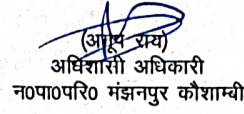 (अनूप राय)
अधिशासी अधिकारी
न०पा०परि० मंझनपुर कौशाम्बी